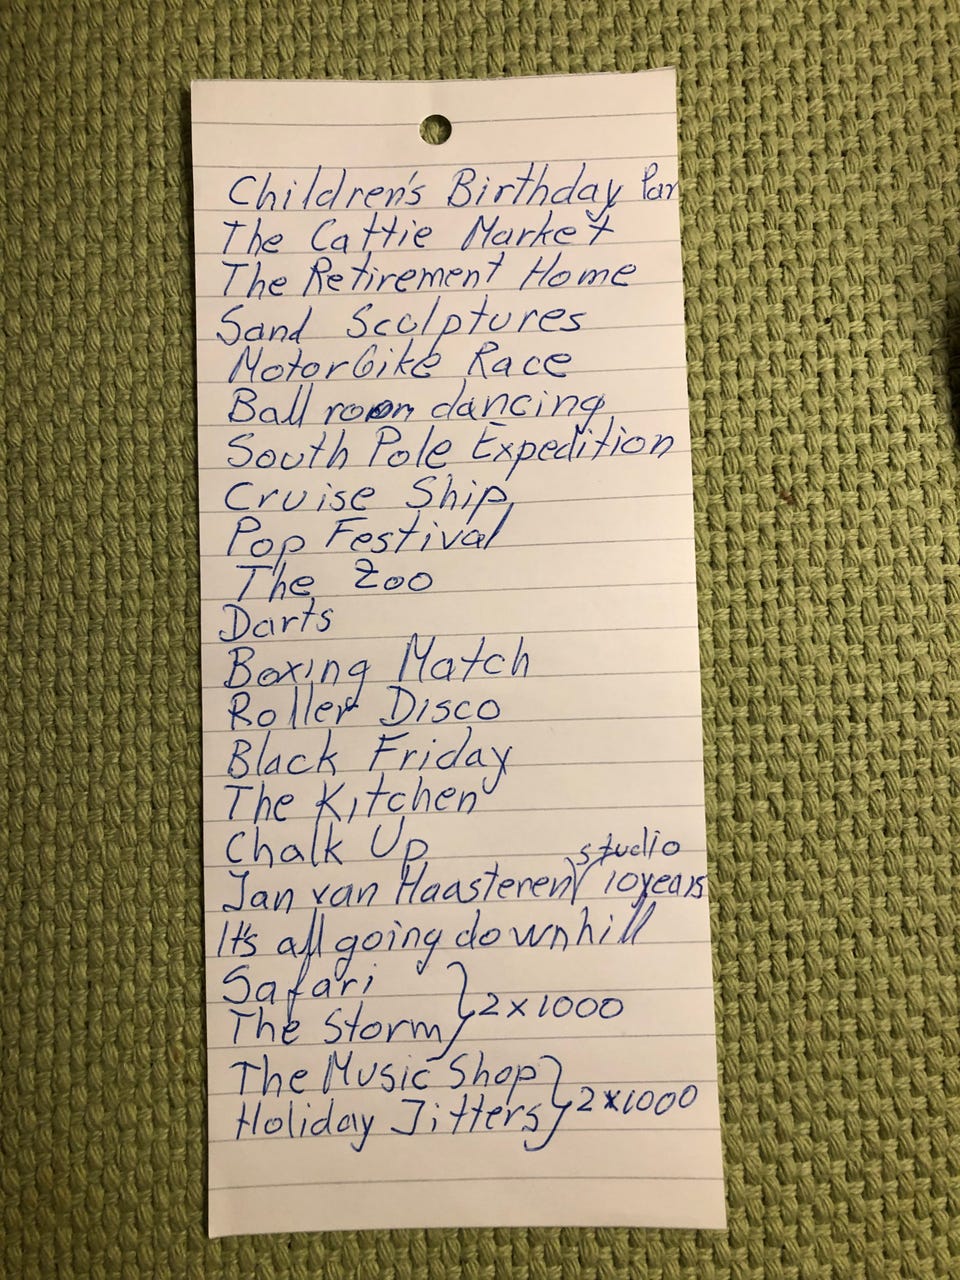 Children's Birthday Par
The Cattie Market
The Retirement Home
Sand Sculptures
Motorbike Race
Ball room dancing
South Pole Expedition
Cruise Ship
Pop Festival
The Zoo
Darts
Boxing Match
Roller Disco
Black Friday
The Kitchen
Chalk Up
studio
Jan van Haasteren 10years
It's all going downhill
Safari
2x1000
The Storm
The Music Shop
2x1000
Holiday Jitters